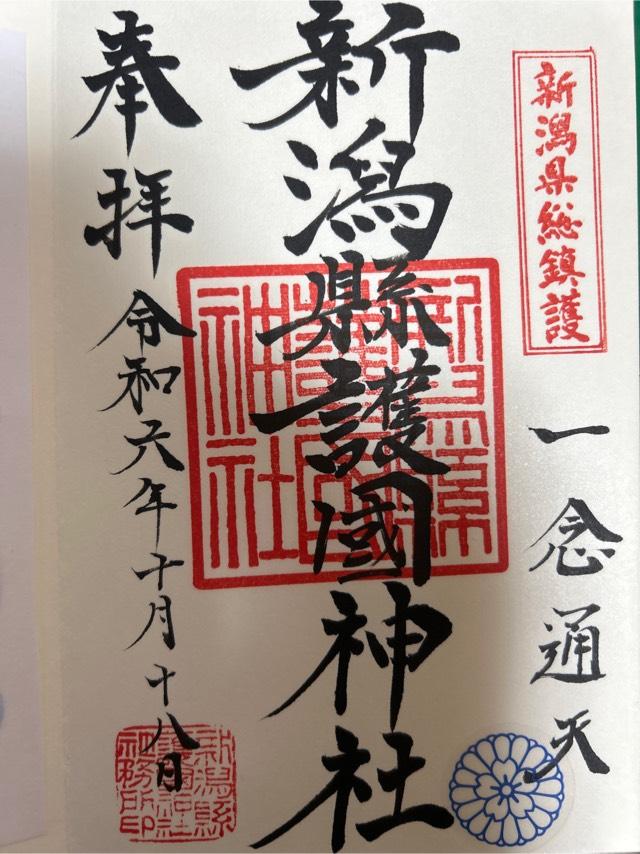 新潟県総鎮護
一念通天
新潟縣護國神社
奉拝
令和六年十月十八日
新潟縣護國神社
新潟縣護國神社社務所印